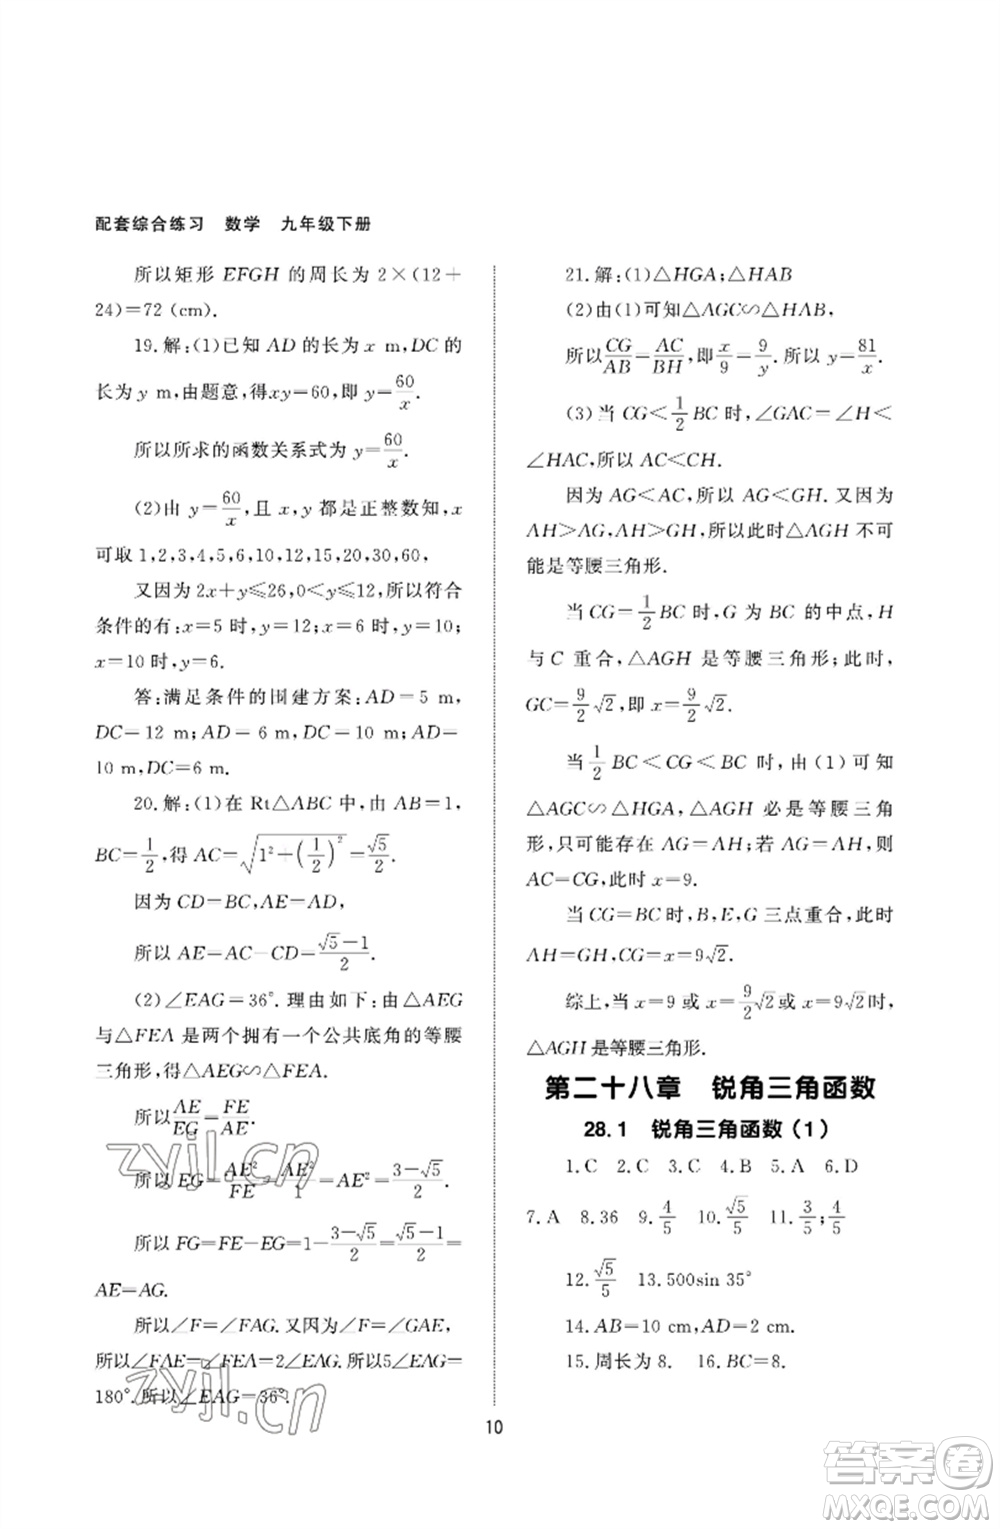 配套综合练习　数学　九年级下册
所以矩形 EFGH 的周长为 2×(12+
24)=72 (cm).
19.解:(1)已知 AD 的长为 x m,DC 的
长为 y m,由题意,得xy=60,即 y=60/x.
所以所求的函数关系式为 y=60/x.
(2)由 y=60/x,且 x,y 都是正整数知,x
可取 1,2,3,4,5,6,10,12,15,20,30,60,
又因为 2x+y≤26,0<y≤12,所以符合
条件的有:x=5 时,y=12;x=6 时,y=10;
x=10 时,y=6.
答:满足条件的围建方案:AD=5 m,
DC=12 m;AD=6 m,DC=10 m;AD=
10 m,DC=6 m.
20.解:(1)在 Rt△ABC 中,由 AB=1,
BC=1/2,得 AC=√(1²+(1/2)²)=√5/2.
因为 CD=BC,AE=AD,
所以 AE=AC-CD=(√5-1)/2.
(2)∠EAG=36°.理由如下:由△AEG
与△FEA是两个拥有一个公共底角的等腰
三角形,得△AEG∽△FEA.
所以AE/EG=FE/AE.
所以 EG=AE²/FE=AE²/1=(3-√5)/2.
所以 FG=FE-EG=1-(3-√5)/2=(√5-1)/2=
AE=AG.
所以∠F=∠FAG.又因为∠F=∠GAE,
所以∠FAE=∠FEA=2∠EAG.所以5∠EAG=
180°.所以∠EAG=36°.
21.解:(1)△HGA;△HAB
(2)由(1)可知△AGC∽△HAB,
所以CG/AB=AC/BH,即x/9=9/y.所以 y=81/x.
(3)当 CG<1/2BC 时,∠GAC=∠H<
∠HAC,所以 AC<CH.
因为 AG<AC,所以 AG<GH.又因为
AH>AG,AH>GH,所以此时△AGH 不可
能是等腰三角形.
当 CG=1/2BC 时,G 为 BC 的中点,H
与 C 重合,△AGH 是等腰三角形;此时,
GC=9/2√2,即 x=9/2√2.
当 1/2BC<CG<BC 时,由(1)可知
△AGC∽△HGA,△AGH 必是等腰三角
形,只可能存在 AG=AH;若 AG=AH,则
AC=CG,此时 x=9.
当 CG=BC时,B,E,G 三点重合,此时
AH=GH,CG=x=9√2.
综上,当 x=9或 x=9/2√2或 x=9√2时,
△AGH是等腰三角形.
第二十八章　锐角三角函数
28.1　锐角三角函数(1)
1.C　2.C　3.C　4.B　5.A　6.D
7.A　8.36　9.4/5　10.√5/2　11.3/5;4/5
12.√5/5　13.500sin 35°
14.AB=10 cm,AD=2 cm.
15.周长为 8.　16.BC=8.
10
zyjl.cn
zyjl.cn
答案圈
MXQE.COM